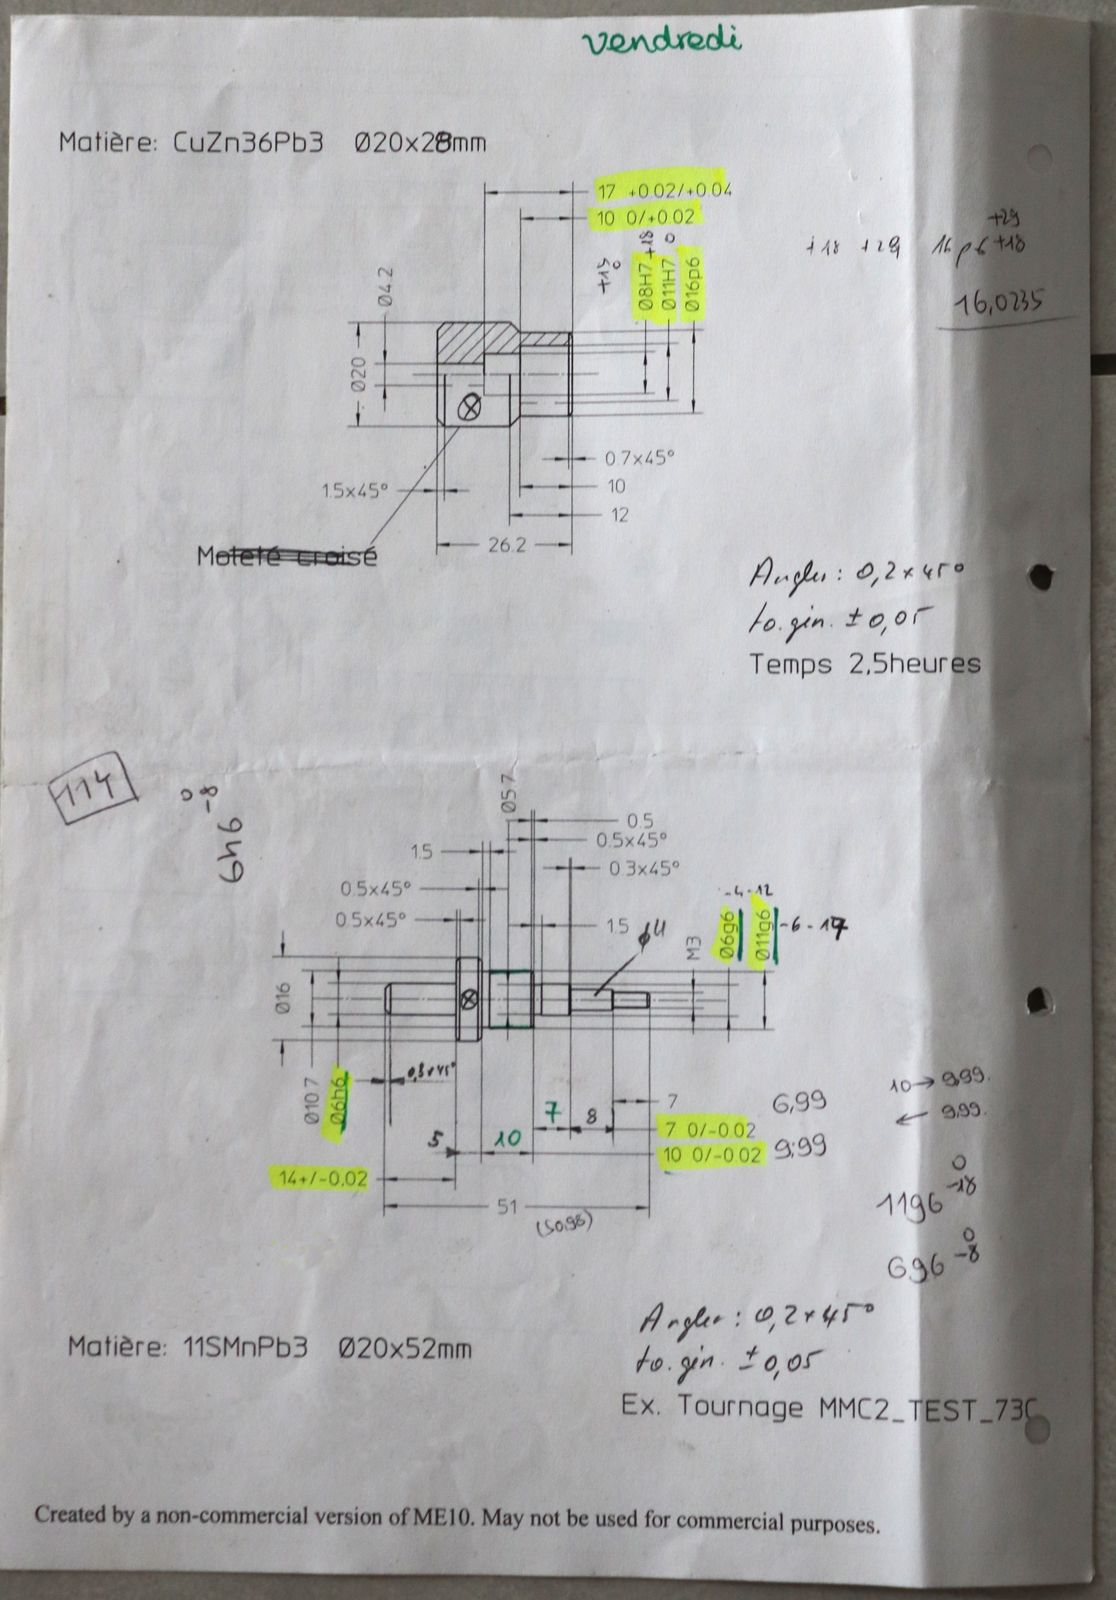 vendredi
Matière: CuZn36Pb3 Ø20x28mm
17 +0.02/+0.04
10 0/+0.02
+18 +29 16p6 +29 +18
16,0235
+15 0
Ø8H7
+18 0
Ø11H7
Ø16p6
Ø4.2
Ø20
0.7x45°
1.5x45°
10
12
26.2
Moleté croisé
Angles: 0,2x45°
to. gén. ±0,05
Temps 2,5heures
114
6h6 0 -8
Ø5.7
0.5
0.5x45°
1.5
0.3x45°
0.5x45°
0.5x45°
1.5
ø4
M3
-4 -12
Ø6g6
Ø11g6
-6 -17
Ø16
Ø10.7
Ø6h6
0,3x45°
7
6,99
10 → 9,99.
← 9,99.
7
8
7 0/-0.02
5
10
10 0/-0.02
9,99
14+/-0.02
51
(50,98)
11g6 0 -18
6g6 0 -8
Angles: 0,2x45°
to. gén. ±0,05
Matière: 11SMnPb3 Ø20x52mm
Ex. Tournage MMC2_TEST_73C
Created by a non-commercial version of ME10. May not be used for commercial purposes.